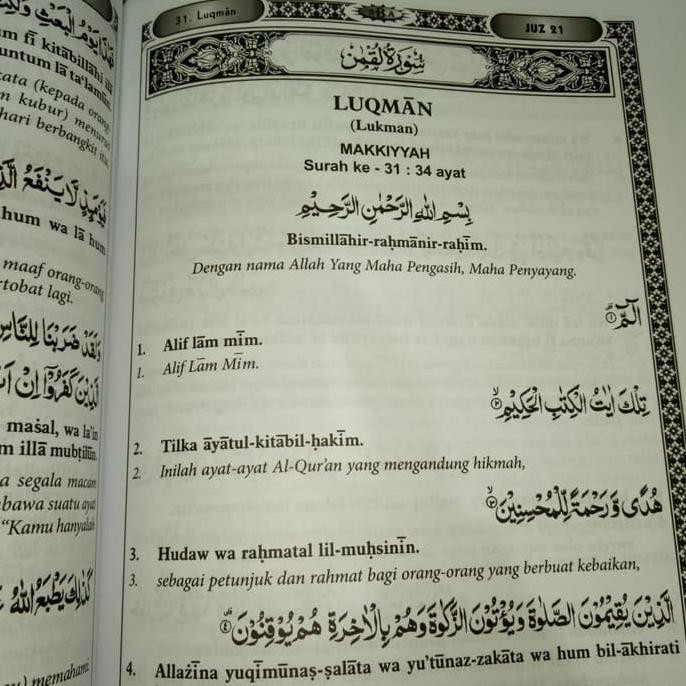 um fī kitābillāhi ilā
untum lā ta'lamūn.
kata (kepada orang-
m kubur) menurut
hari berbangkit itu.
فَيَوْمَئِذٍ لَّا يَنْفَعُ الَّذ
hum wa lā hum
maaf orang-orang
rtobat lagi.
وَلَقَدْ ضَرَبْنَا لِلنَّاسِ
الَّذِيْنَ كَفَرُوْٓا اِنْ اَنْ
maṡal, wa la'in
m illā mubṭilūn.
a segala macam
bawa suatu ayat
"Kamu hanyalah
كَذٰلِكَ يَطْبَعُ اللّٰهُ
memahami.
31. Luqmān
JUZ 21
سُوْرَةُ لُقْمٰن
LUQMĀN
(Lukman)
MAKKIYYAH
Surah ke - 31 : 34 ayat
بِسْمِ اللّٰهِ الرَّحْمٰنِ الرَّحِيْمِ
Bismillāhir-raḥmānir-raḥīm.
Dengan nama Allah Yang Maha Pengasih, Maha Penyayang.
الۤمّۤ ۗ ۝١
1. Alif lām mīm.
1. Alif Lām Mīm.
تِلْكَ اٰيٰتُ الْكِتٰبِ الْحَكِيْمِۙ ۝٢
2. Tilka āyātul-kitābil-ḥakīm.
2. Inilah ayat-ayat Al-Qur'an yang mengandung hikmah,
هُدًى وَّرَحْمَةً لِّلْمُحْسِنِيْنَۙ ۝٣
3. Hudaw wa raḥmatal lil-muḥsinīn.
3. sebagai petunjuk dan rahmat bagi orang-orang yang berbuat kebaikan,
الَّذِيْنَ يُقِيْمُوْنَ الصَّلٰوةَ وَيُؤْتُوْنَ الزَّكٰوةَ وَهُمْ بِالْاٰخِرَةِ هُمْ يُوْقِنُوْنَۗ ۝٤
4. Allażīna yuqīmūnaṣ-ṣalāta wa yu'tūnaz-zakāta wa hum bil-ākhirati